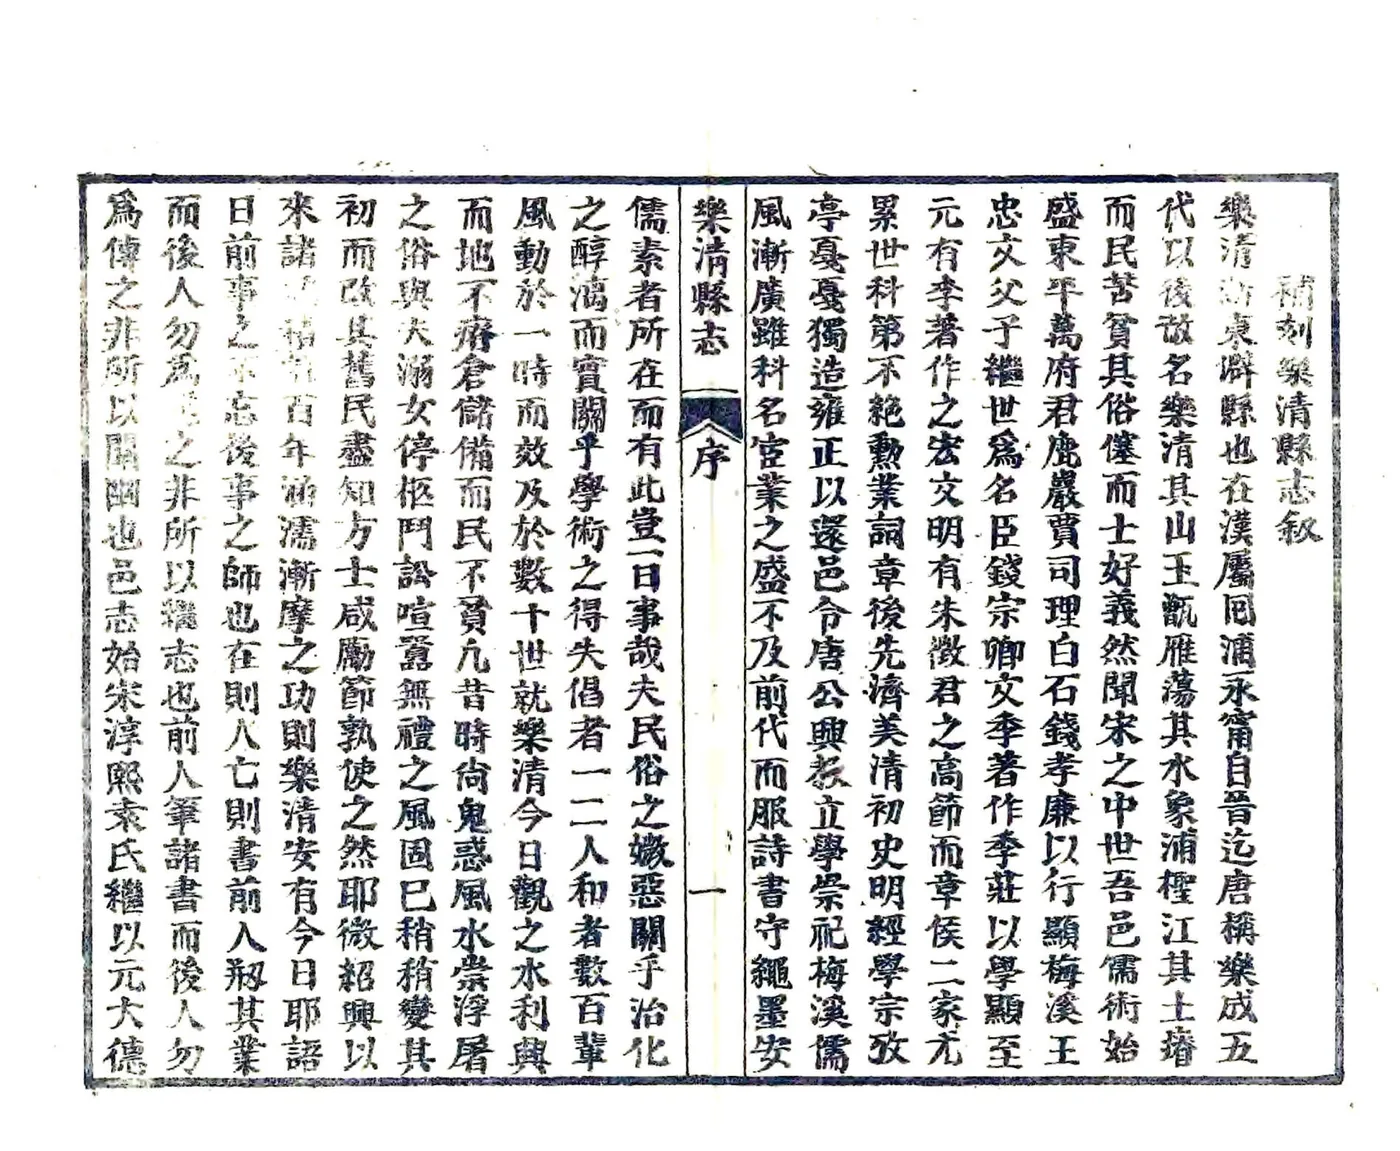 補刻樂清縣志敘
樂清浙東僻縣也在漢屬回浦永甯自晉迄唐稱樂成五
代以後改名樂清其山玉甑雁蕩其水象浦檉江其土瘠
而民苦貧其俗僿而士好義然聞宋之中世吾邑儒術始
盛東平萬府君鹿巖賈司理白石錢孝廉以行顯梅溪王
忠文父子繼世爲名臣錢宗卿文季著作季莊以學顯至
元有李著作之宏文明有朱徵君之高節而章侯二家尤
累世科第不絶勳業詞章後先濟美清初史明經學宗攷
亭戞戞獨造雍正以還邑令唐公興教立學崇祀梅溪儒
風漸廣雖科名宦業之盛不及前代而服詩書守繩墨安
樂清縣志
序
一
儒素者所在而有此豈一日事哉夫民俗之媺惡關乎治化
之醇漓而實關乎學術之得失倡者一二人和者數百輩
風動於一時而效及於數十世就樂清今日觀之水利興
而地不瘠倉儲備而民不貧凡昔時尙鬼惑風水崇浮屠
之俗與夫溺女停柩鬥訟喧囂無禮之風固已稍稍變其
初而改其舊民盡知方士咸勵節孰使之然耶微紹興以
來諸 百年涵濡漸摩之功則樂清安有今日耶語
曰前事之不忘後事之師也在則人亡則書前人剙其業
而後人勿爲 之非所以繼志也前人筆諸書而後人勿
爲傳之非所以闡幽也邑志始宋淳熙袁氏繼以元大德